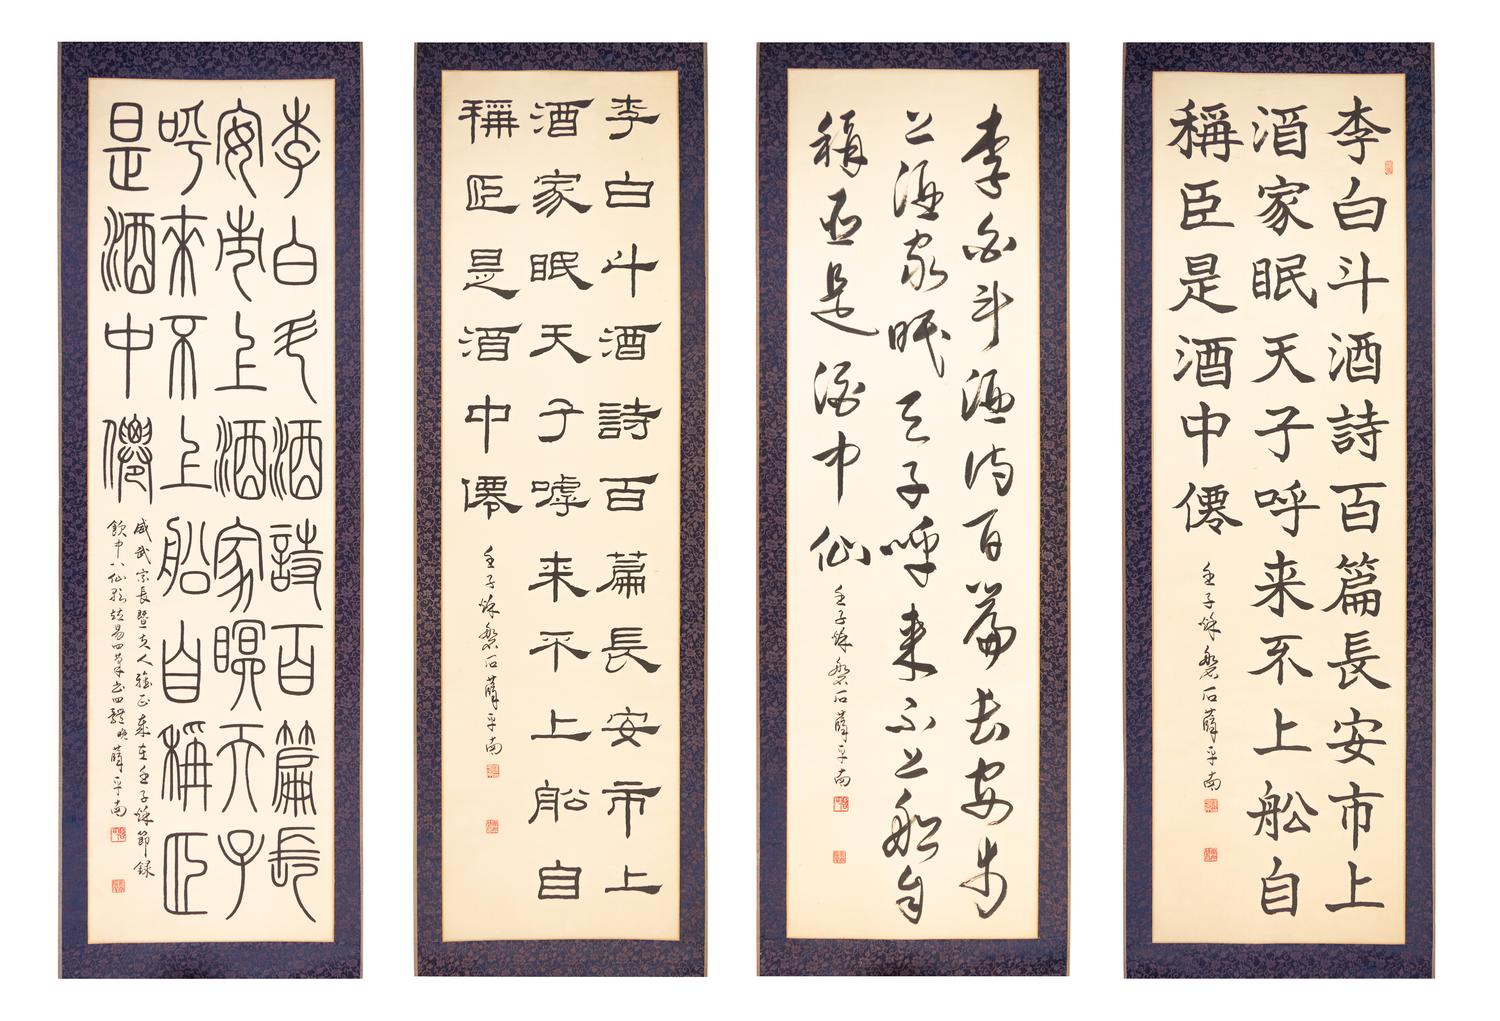 李白斗酒詩百篇長安市上
酒家眠天子呼来不上船自
稱臣是酒中僊
壬子秌磐石薛平南
李白斗酒詩百篇長安市
上酒家眠天子呼来不上船自
稱臣是酒中仙
壬子秌磐石薛平南
李白斗酒詩百篇長安市上
酒家眠天子嘑来不上船自
稱臣是酒中僊
壬子秌磐石薛平南
李白斗酒詩百篇長
安市上酒家瞑天子
呼來不上船自稱臣
是酒中僊
咸武宗長暨夫人雅正歲在壬子秌節録
飲中八仙歌易四筆書四體薛平南